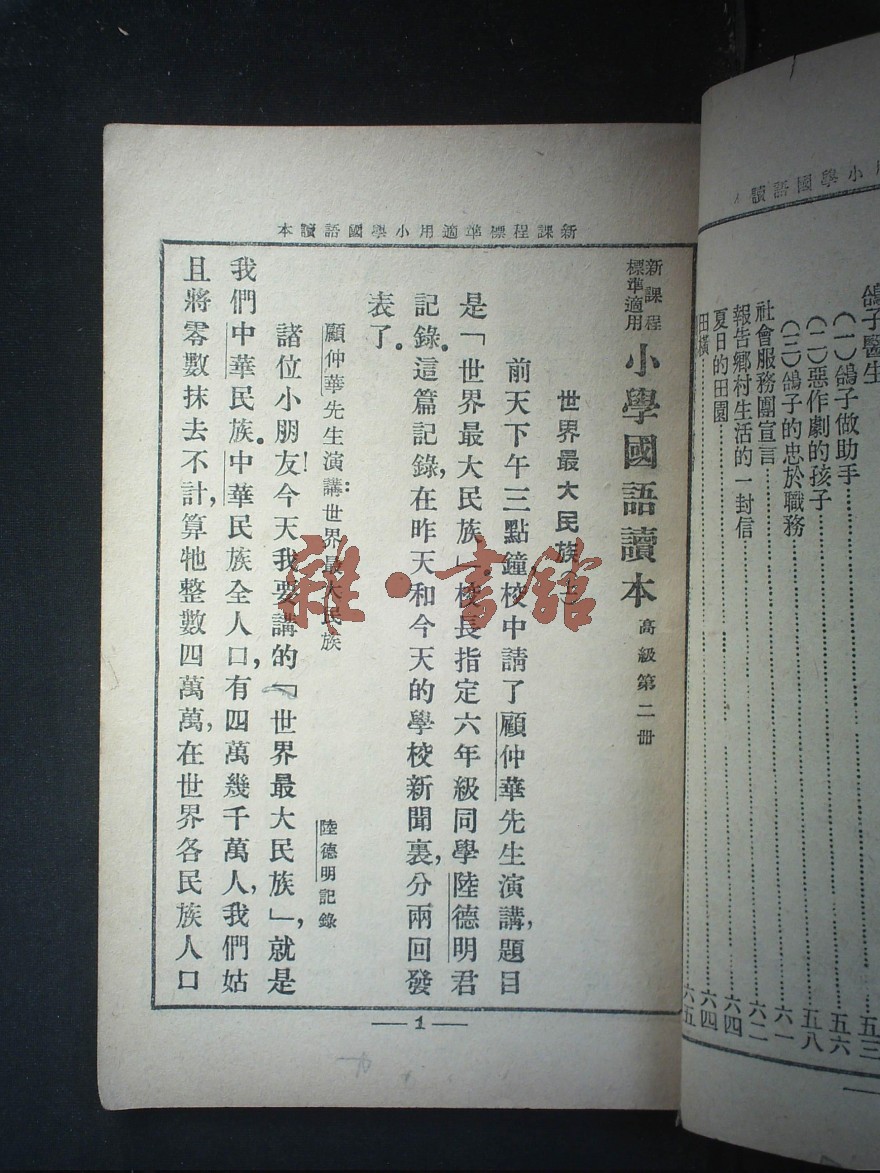 小學國語讀本
鴿子醫生
(一)鴿子做助手…………五三
(二)惡作劇的孩子…………五六
(三)鴿子的忠於職務…………五八
社會服務團宣言…………六一
報告鄉村生活的一封信…………六二
夏日的田園…………六四
田橫…………六四
六五
本讀語國學小用適準標程課新
新課程標準適用 小學國語讀本 高級第二冊
世界最大民族(上)
前天下午三點鐘,校中請了顧仲華先生演講,題目
是「世界最大民族」。校長指定六年級同學陸德明君
記錄。這篇記錄,在昨天和今天的學校新聞裏,分兩回發
表了。
顧仲華先生演講:世界最大民族
陸德明記錄
諸位小朋友!今天我要講的「世界最大民族」,就是
我們中華民族。中華民族全人口,有四萬幾千萬人,我們姑
且將零數抹去不計,算牠整數四萬萬,在世界各民族人口
—1—
雜·書館